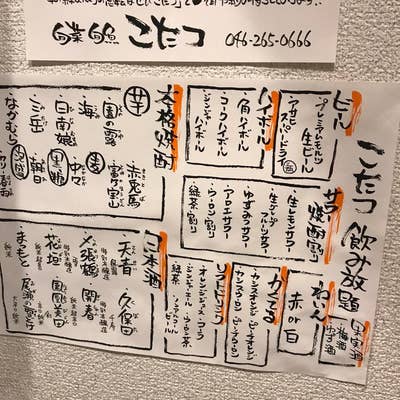 旬菜 旬魚 こたつ 046-265-0666
こたつ 飲み放題
ビール
プレミアムモルツ
生ビール
アサヒ
スーパードライ
ハイボール
角ハイボール
コークハイボール
ジンジャーハイボール
本格焼酎
芋
赤兎馬
富乃宝山
園の露
海
日南娘
三岳
なかむら
麦
中々
黒糖
朝日
サワー 焼酎割り
生レモンサワー
生グレープフルーツサワー
ゆずみつサワー
アロエサワー
ウーロン割り
緑茶割り
日本酒
天吹
久保田
〆張鶴
開春
花垣
国権
まんさく
果実酒
梅酒
ゆず酒
わいん
赤or白
かくてる
カシスオレンジ
カシスウーロン
ソフトドリンク
オレンジジュース
コーラ
ジンジャエール
ウーロン茶
緑茶
ノンアルコールビール